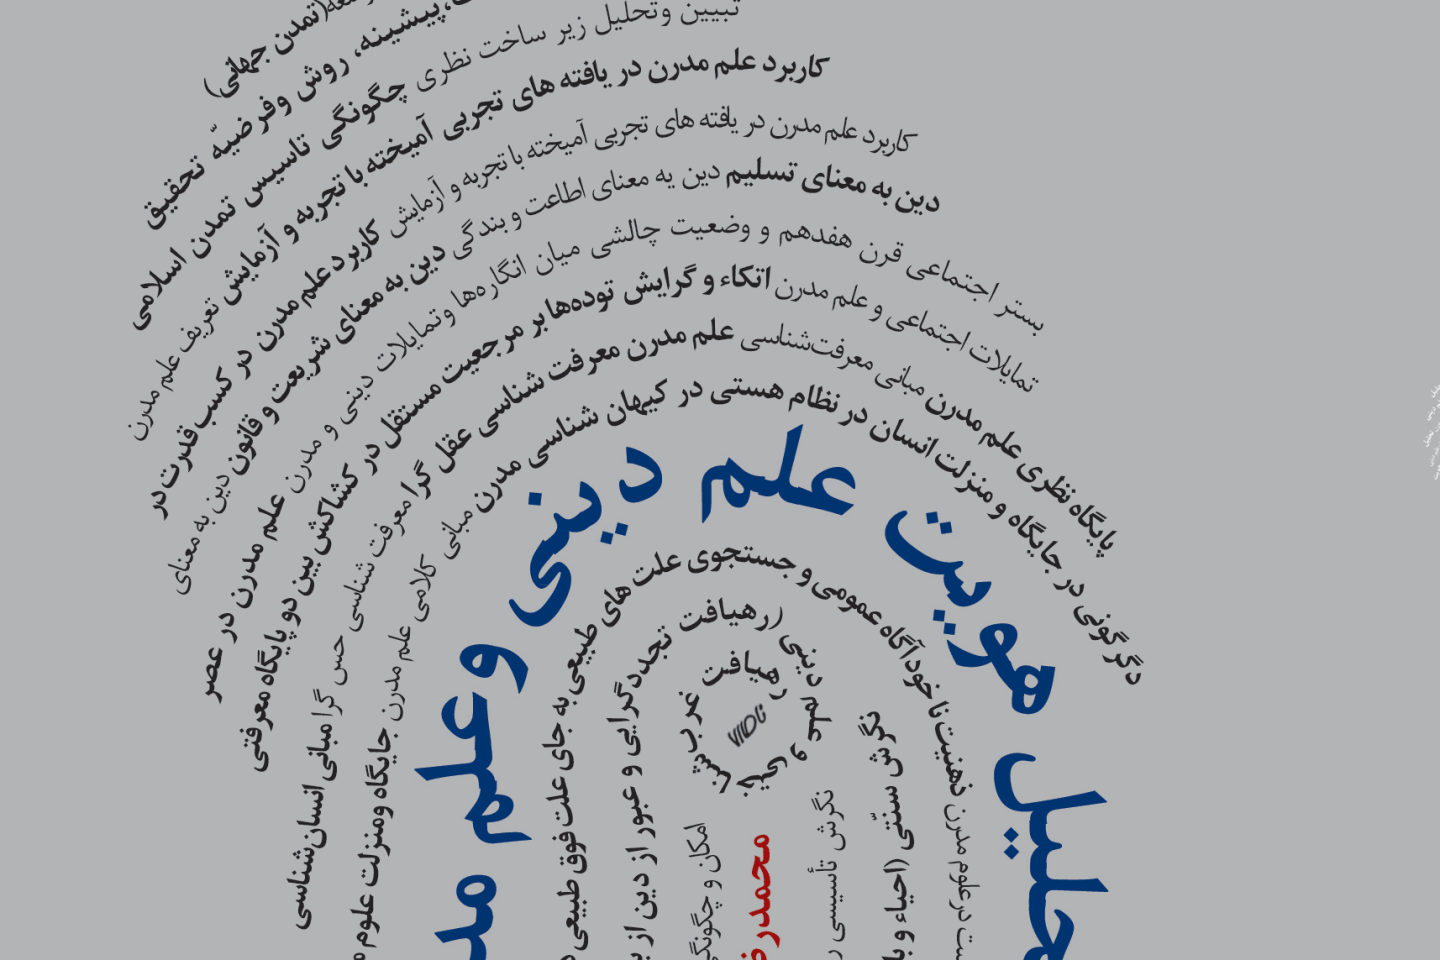 (تمدن جهانی)
پیشینه، روش وفرضیّه تحقیق
تبیین وتحلیل زیر ساخت نظری چگونگی تاسیس تمدن اسلامی
کاربرد علم مدرن در یافته های تجربی آمیخته با تجربه و آزمایش تعریف علم مدرن
کاربرد علم مدرن در یافته های تجربی آمیخته با تجربه و آزمایش کاربرد علم مدرن در کسب قدرت در
دین به معنای تسلیم دین یه معنای اطاعت و بندگی دین به معنای شریعت و قانون دین به معنای
بستر اجتماعی قرن هفدهم و وضعیت چالشی میان انگاره‌ها وتمایلات دینی و مدرن علم مدرن در عصر
تمایلات اجتماعی و علم مدرن اتکاء و گرایش توده‌ها بر مرجعیت مستقل در کشاکش بین دو پایگاه معرفتی
پایگاه نظری علم مدرن مبانی معرفت‌شناسی علم مدرن معرفت شناسی عقل گرا معرفت شناسی حس گرا مبانی انسان‌شناسی
دگرگونی در جایگاه و منزلت انسان در نظام هستی در کیهان شناسی مدرن مبانی کلامی علم مدرن جایگاه ومنزلت علوم
هویت علم دینی وعلم
ذهنیت نا خودآگاه عمومی و جستجوی علت های طبیعی به جای علت فوق طبیعی
نگرش سنّتی (احیاء و
(رهیافت تجددگرایی و عبور از دین از
رهیافت غرب شناختی و علم دینی
نگرش تأسیسی
امکان و